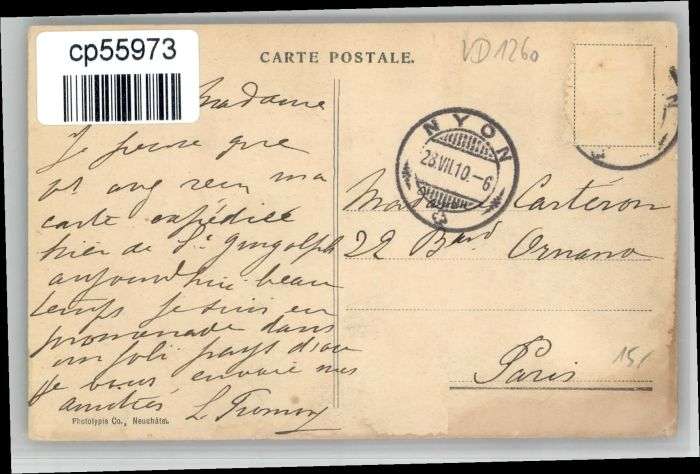 cp55973
CARTE POSTALE.
VD1260
Madame
Je pense que
vs avez reçu ma
carte expédiée
hier de St Gingolph
aujourd'hui beau
temps je suis en
promenade dans
un joli pays d'où
je vous envoie mes
amitiés
NYON
28.VII.10.-6
Madame Carteron
22 Bard Ornano
Paris
15/
Phototypie Co., Neuchâtel.